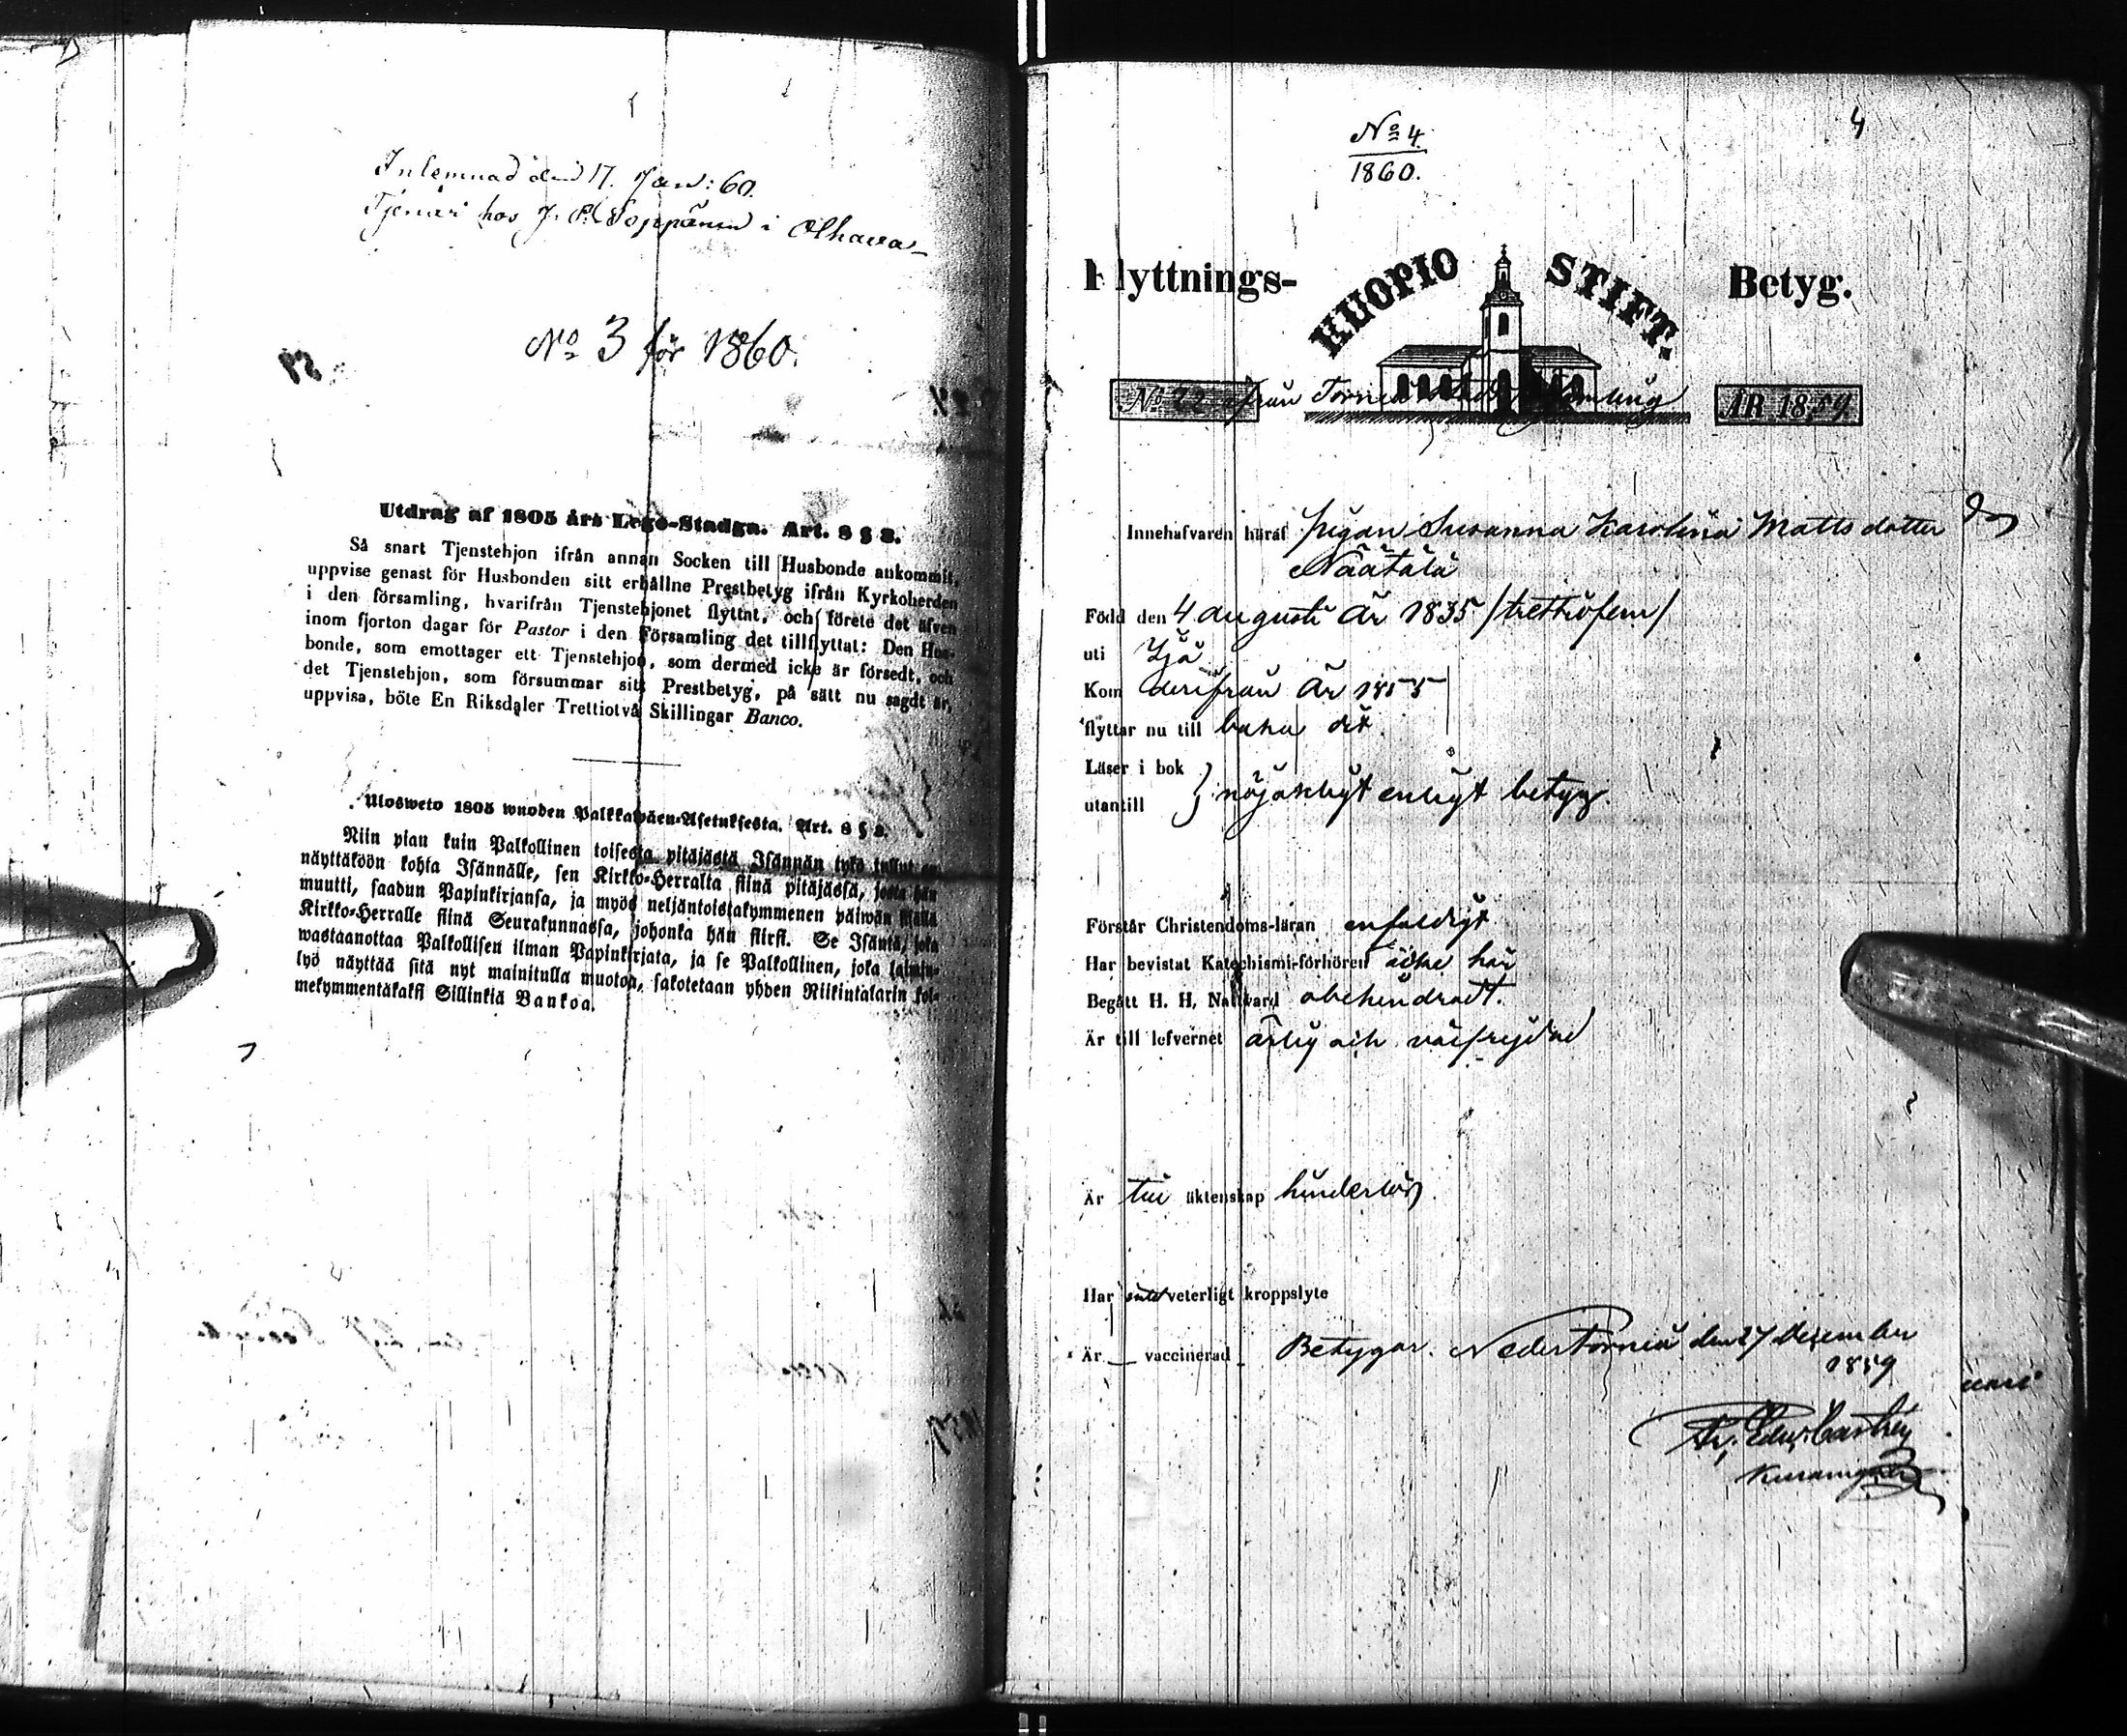 Inlemnad den 17. Jan: 60.
Tjenar hos J. P. Soppänen i Olhava
No 3 för 1860.
Utdrag af 1805 års Lego-Stadga. Art. 8 § 3.
Så snart Tjenstehjon ifrån annan Socken till Husbonde ankommit,
uppvise genast för Husbonden sitt erhållne Prestbetyg ifrån Kyrkoherden
i den församling, hvarifrån Tjenstehjonet flyttat, och förete det äfven
inom fjorton dagar för Pastor i den Församling det tillflyttat: Den Hus-
bonde, som emottager ett Tjenstehjon, som dermed icke är försedt, och
det Tjenstehjon, som försummar sitt Prestbetyg, på sätt nu sagdt är,
uppvisa, böte En Riksdaler Trettiotvå Skillingar Banco.
Ulosweto 1805 wuoden Palkkawäen-Asetuksesta. Art. 8 § 3.
Niin pian kuin Palkollinen toisesta pitäjästä Isännän tykö tullut on,
näyttäköön kohta Isännälle, sen Kirkko-Herralta siinä pitäjässä, josta hän
muutti, saadun Papinkirjansa, ja myös neljäntoistakymmenen päiwän sisällä
Kirkko-Herralle siinä Seurakunnassa, johonka hän siirsi. Se Isäntä, joka
wastaanottaa Palkollisen ilman Papinkirjata, ja se Palkollinen, joka laimin-
lyö näyttää sitä nyt mainitulla muotoa, sakotetaan yhden Riikintalarin kol-
mekymmentäkaksi Sillinkiä Bankoa.
4
No 4.
1860.
Flyttnings- KUOPIO STIFT. Betyg.
No 22 ifrån Torneå Stads församling ÅR 1859
Innehafvaren häraf pigan Susanna Karolina Matts dotter
Näätälä
Född den 4 augusti År 1835 /trettiofem/
uti Ijå
Kom derifrån År 1855
flyttar nu till baka dit.
Läser i bok
utantill } nöjaktigt enligt betyg.
Förstår Christendoms-läran enfaldigt
Har bevistat Katechismi-förhören icke här
Begått H. H, Nattvard obehindradt.
Är till lefvernet ärlig och välfrejdad
Är till äktenskap hinderlös
Har intet veterligt kroppslyte
Är — vaccinerad Betygar. NederTorneå den 27 December
1859